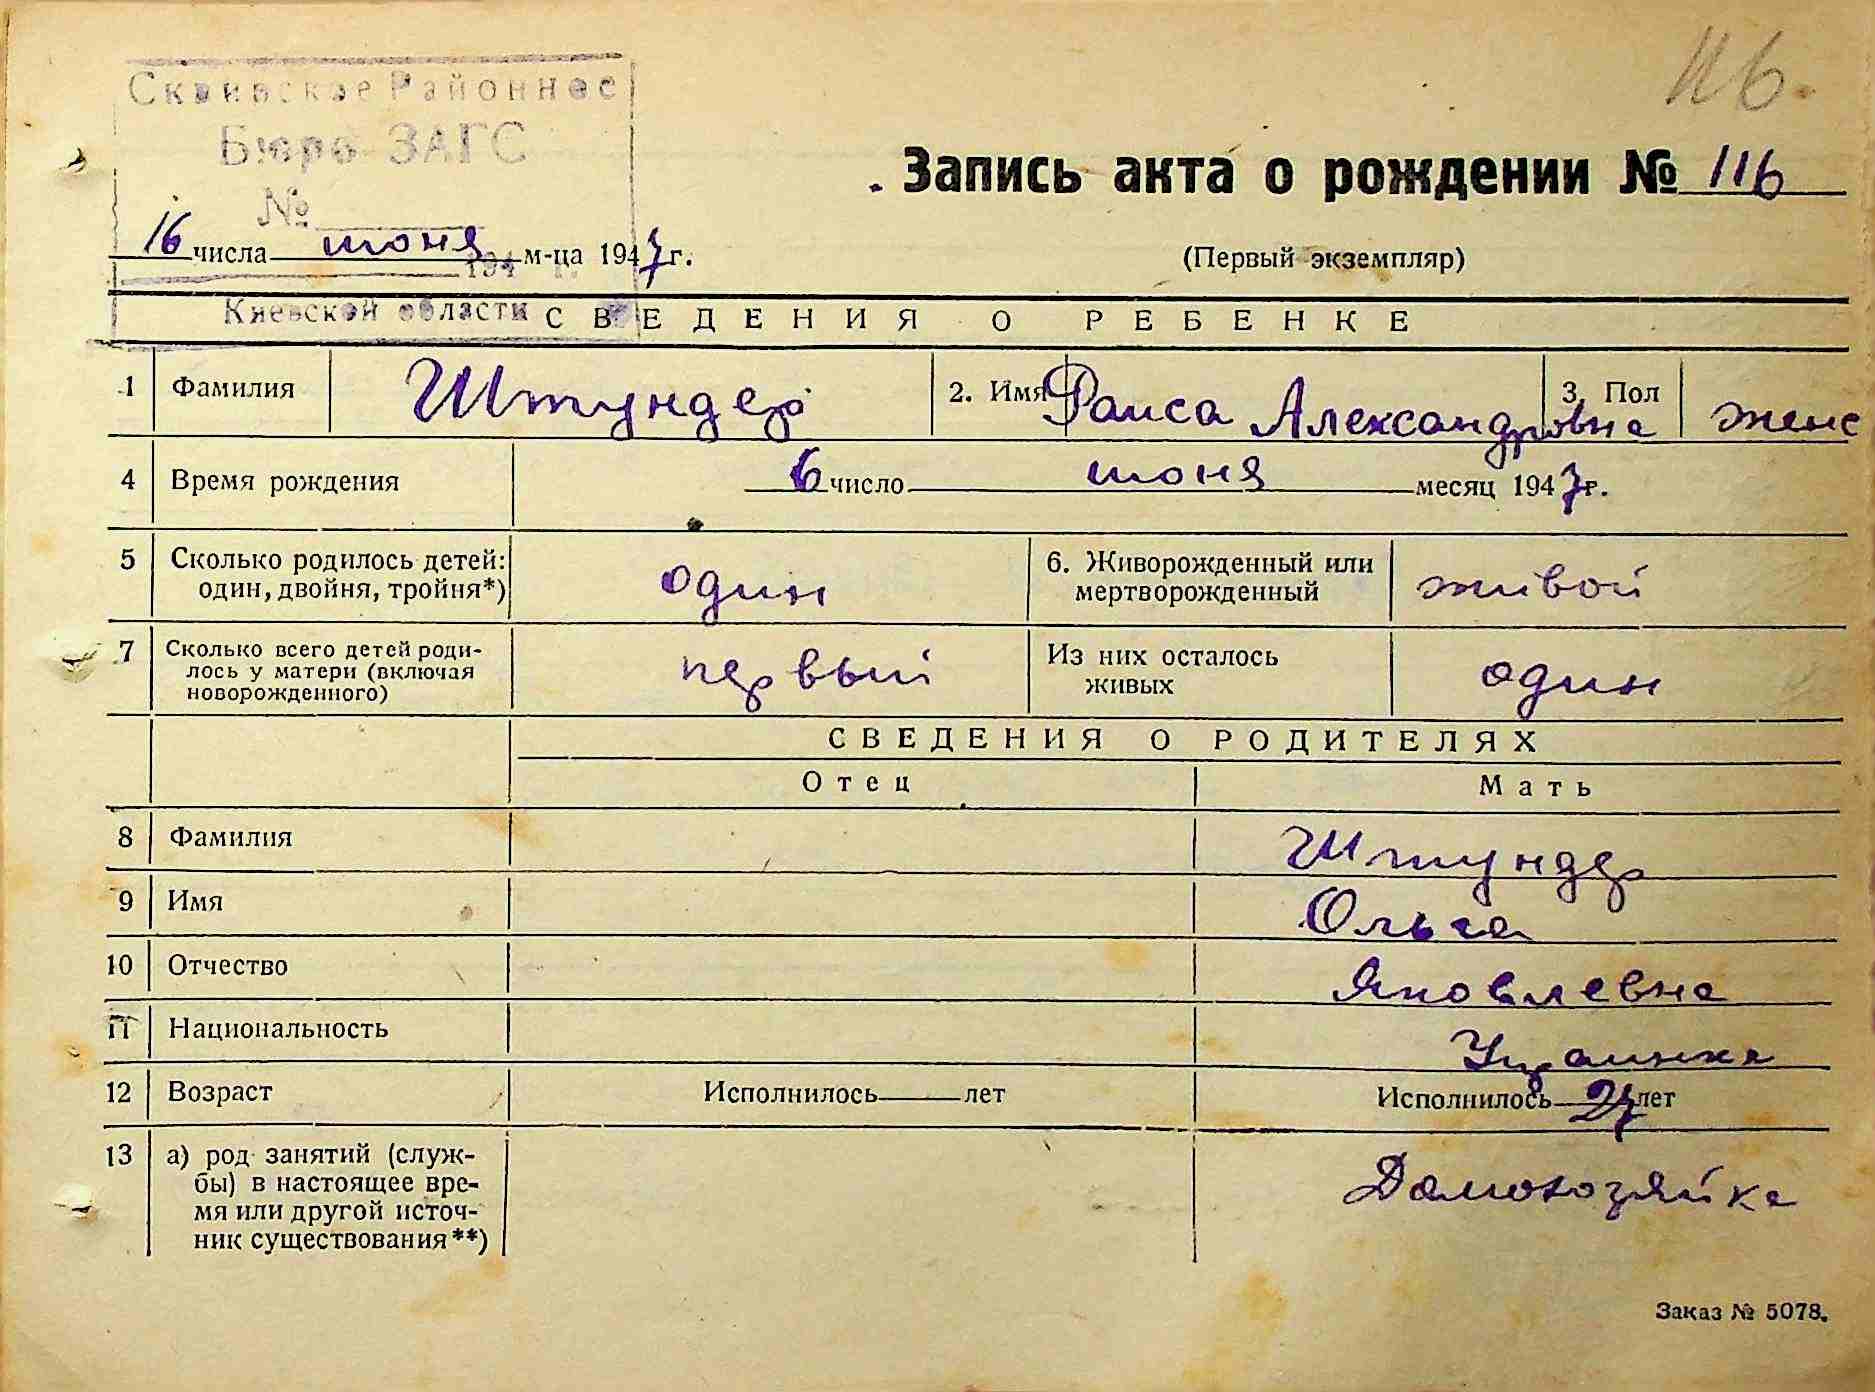 116.
Сквирское Районное
Бюро ЗАГС
№
Киевской области
Запись акта о рождении № 116
16 числа июня м-ца 1947 г.
(Первый экземпляр)
СВЕДЕНИЯ О РЕБЕНКЕ
1 Фамилия Штундер 2. Имя Раиса Александровна 3. Пол женс
4 Время рождения 6 число июня месяц 1947 г.
5 Сколько родилось детей: один 6. Живорожденный или живой
один, двойня, тройня*) мертворожденный
7 Сколько всего детей роди- первый Из них осталось один
лось у матери (включая живых
новорожденного)
СВЕДЕНИЯ О РОДИТЕЛЯХ
Отец Мать
8 Фамилия Штундер
9 Имя Ольга
10 Отчество Яковлевна
11 Национальность Украинка
12 Возраст Исполнилось лет Исполнилось 27 лет
13 а) род занятий (служ- Домохозяйка
бы) в настоящее вре-
мя или другой источ-
ник существования**)
Заказ № 5078.